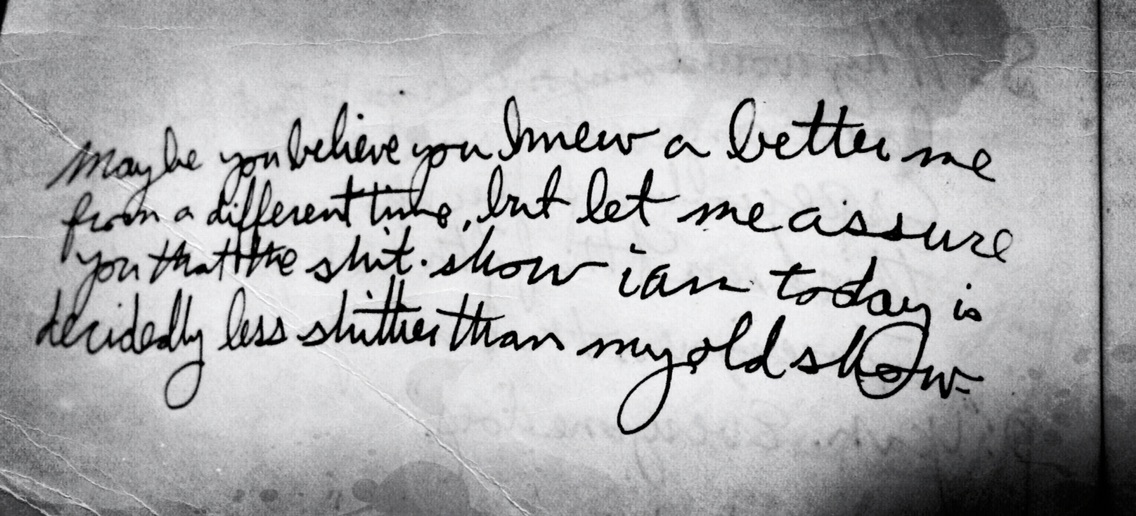 maybe you believe you knew a better me
from a different time, but let me assure
you that the shit.show i am today is
decidedly less shittier than my old show.